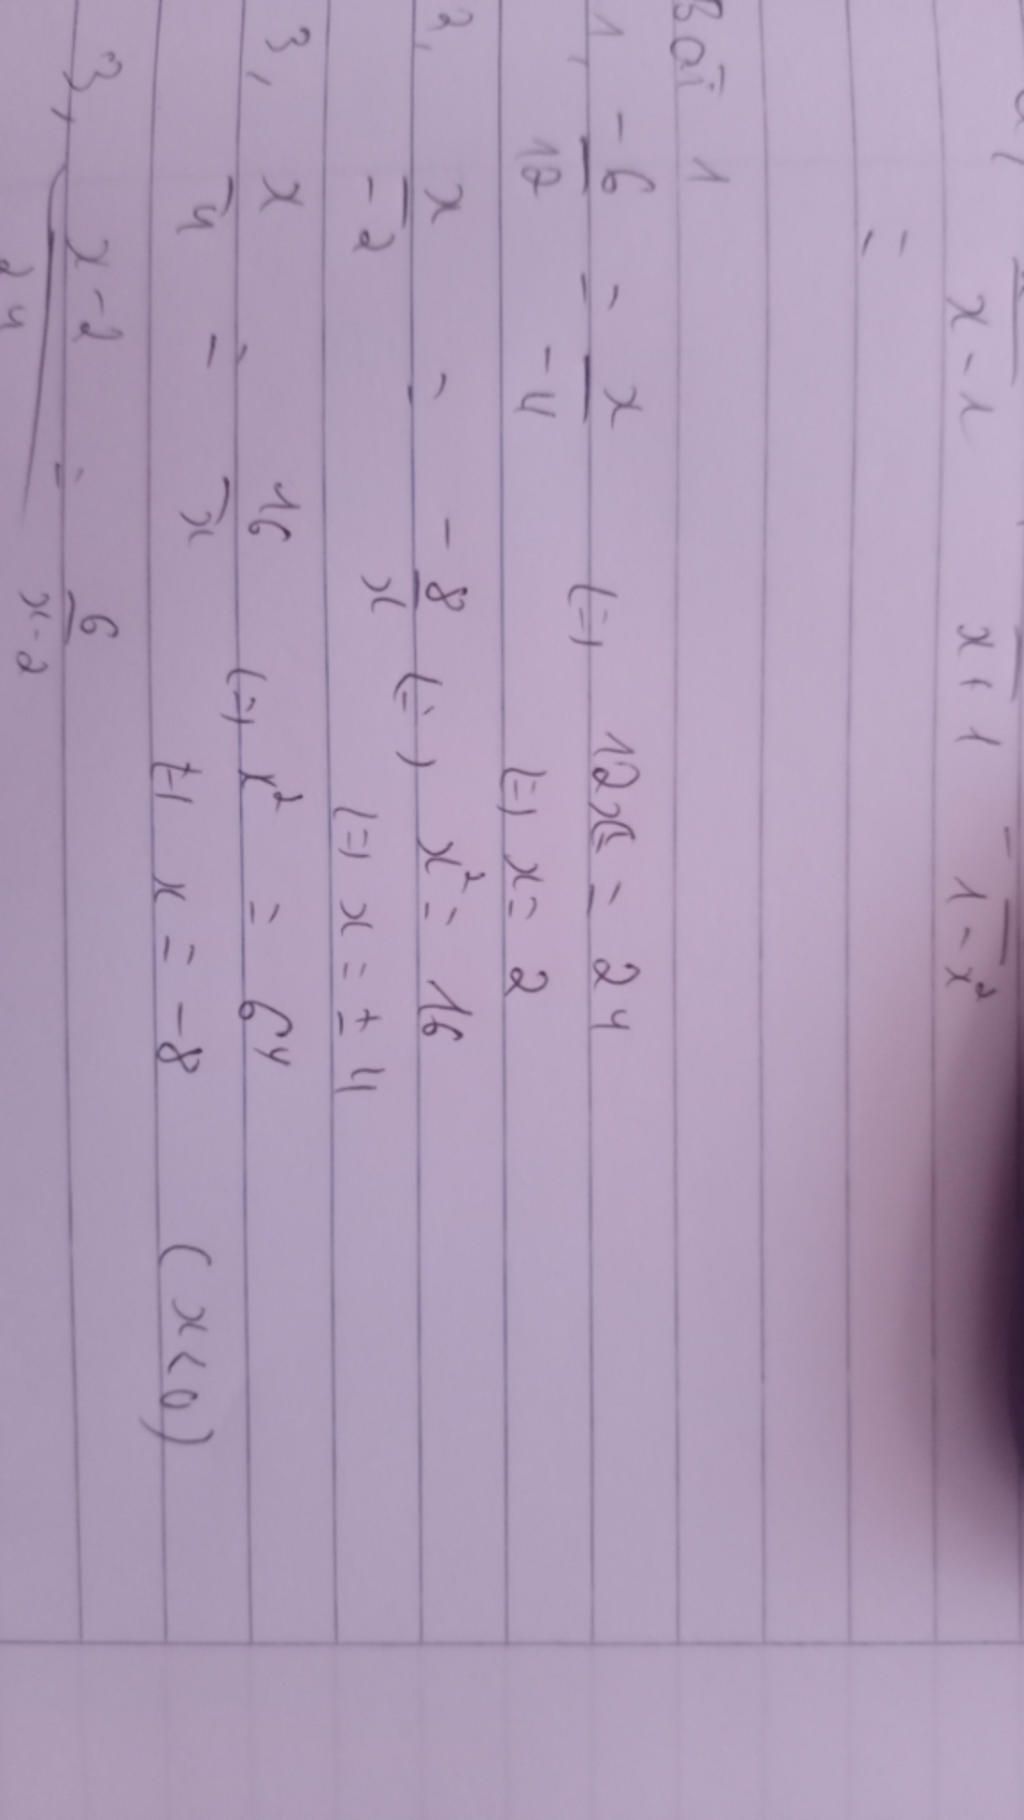 x - 1 x + 1 1 - x²
=
Bài 1
1, -6/12 = x/-4 (=) 12x = 24
(=) x = 2
2, x/-2 = -8/x (=) x² = 16
(=) x = ± 4
3, x/4 = 16/x (=) x² = 64
(=) x = -8 (x < 0)
3, x-2/24 = 6/x-2